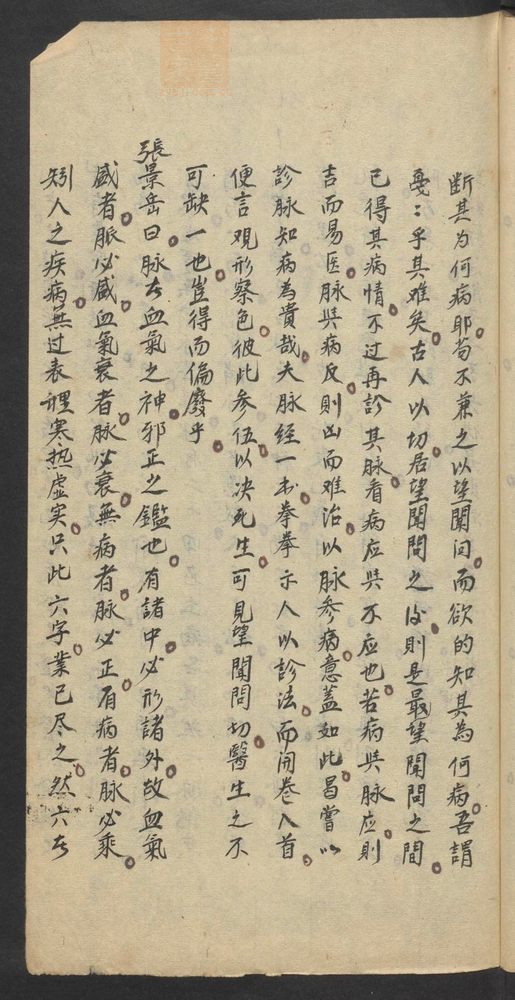 断其为何病耶苟不兼之以望闻问而欲的知其為何病吾謂
戞〻乎其难矣古人以切居望聞問之後則是最望聞問之間
已得其病情不过再診其脉看病应與不应也若病與脉应則
吉而易医脉與病反則凶而难治以脉参病意蓋如此曷嘗以
診脉知病為貴哉夫脉经一书拳拳示人以診法而开卷入首
便言观形察色彼此参伍以决死生可見望聞問切醫生之不
可缺一也岂得而偏廢乎
張景岳曰脉者血氣之神邪正之鑑也有諸中必形諸外故血氣
盛者脈必盛血氣衰者脉必衰無病者脉必正有病者脉必乘
矧人之疾病無过表裡寒热虚实只此六字業已尽之然六者